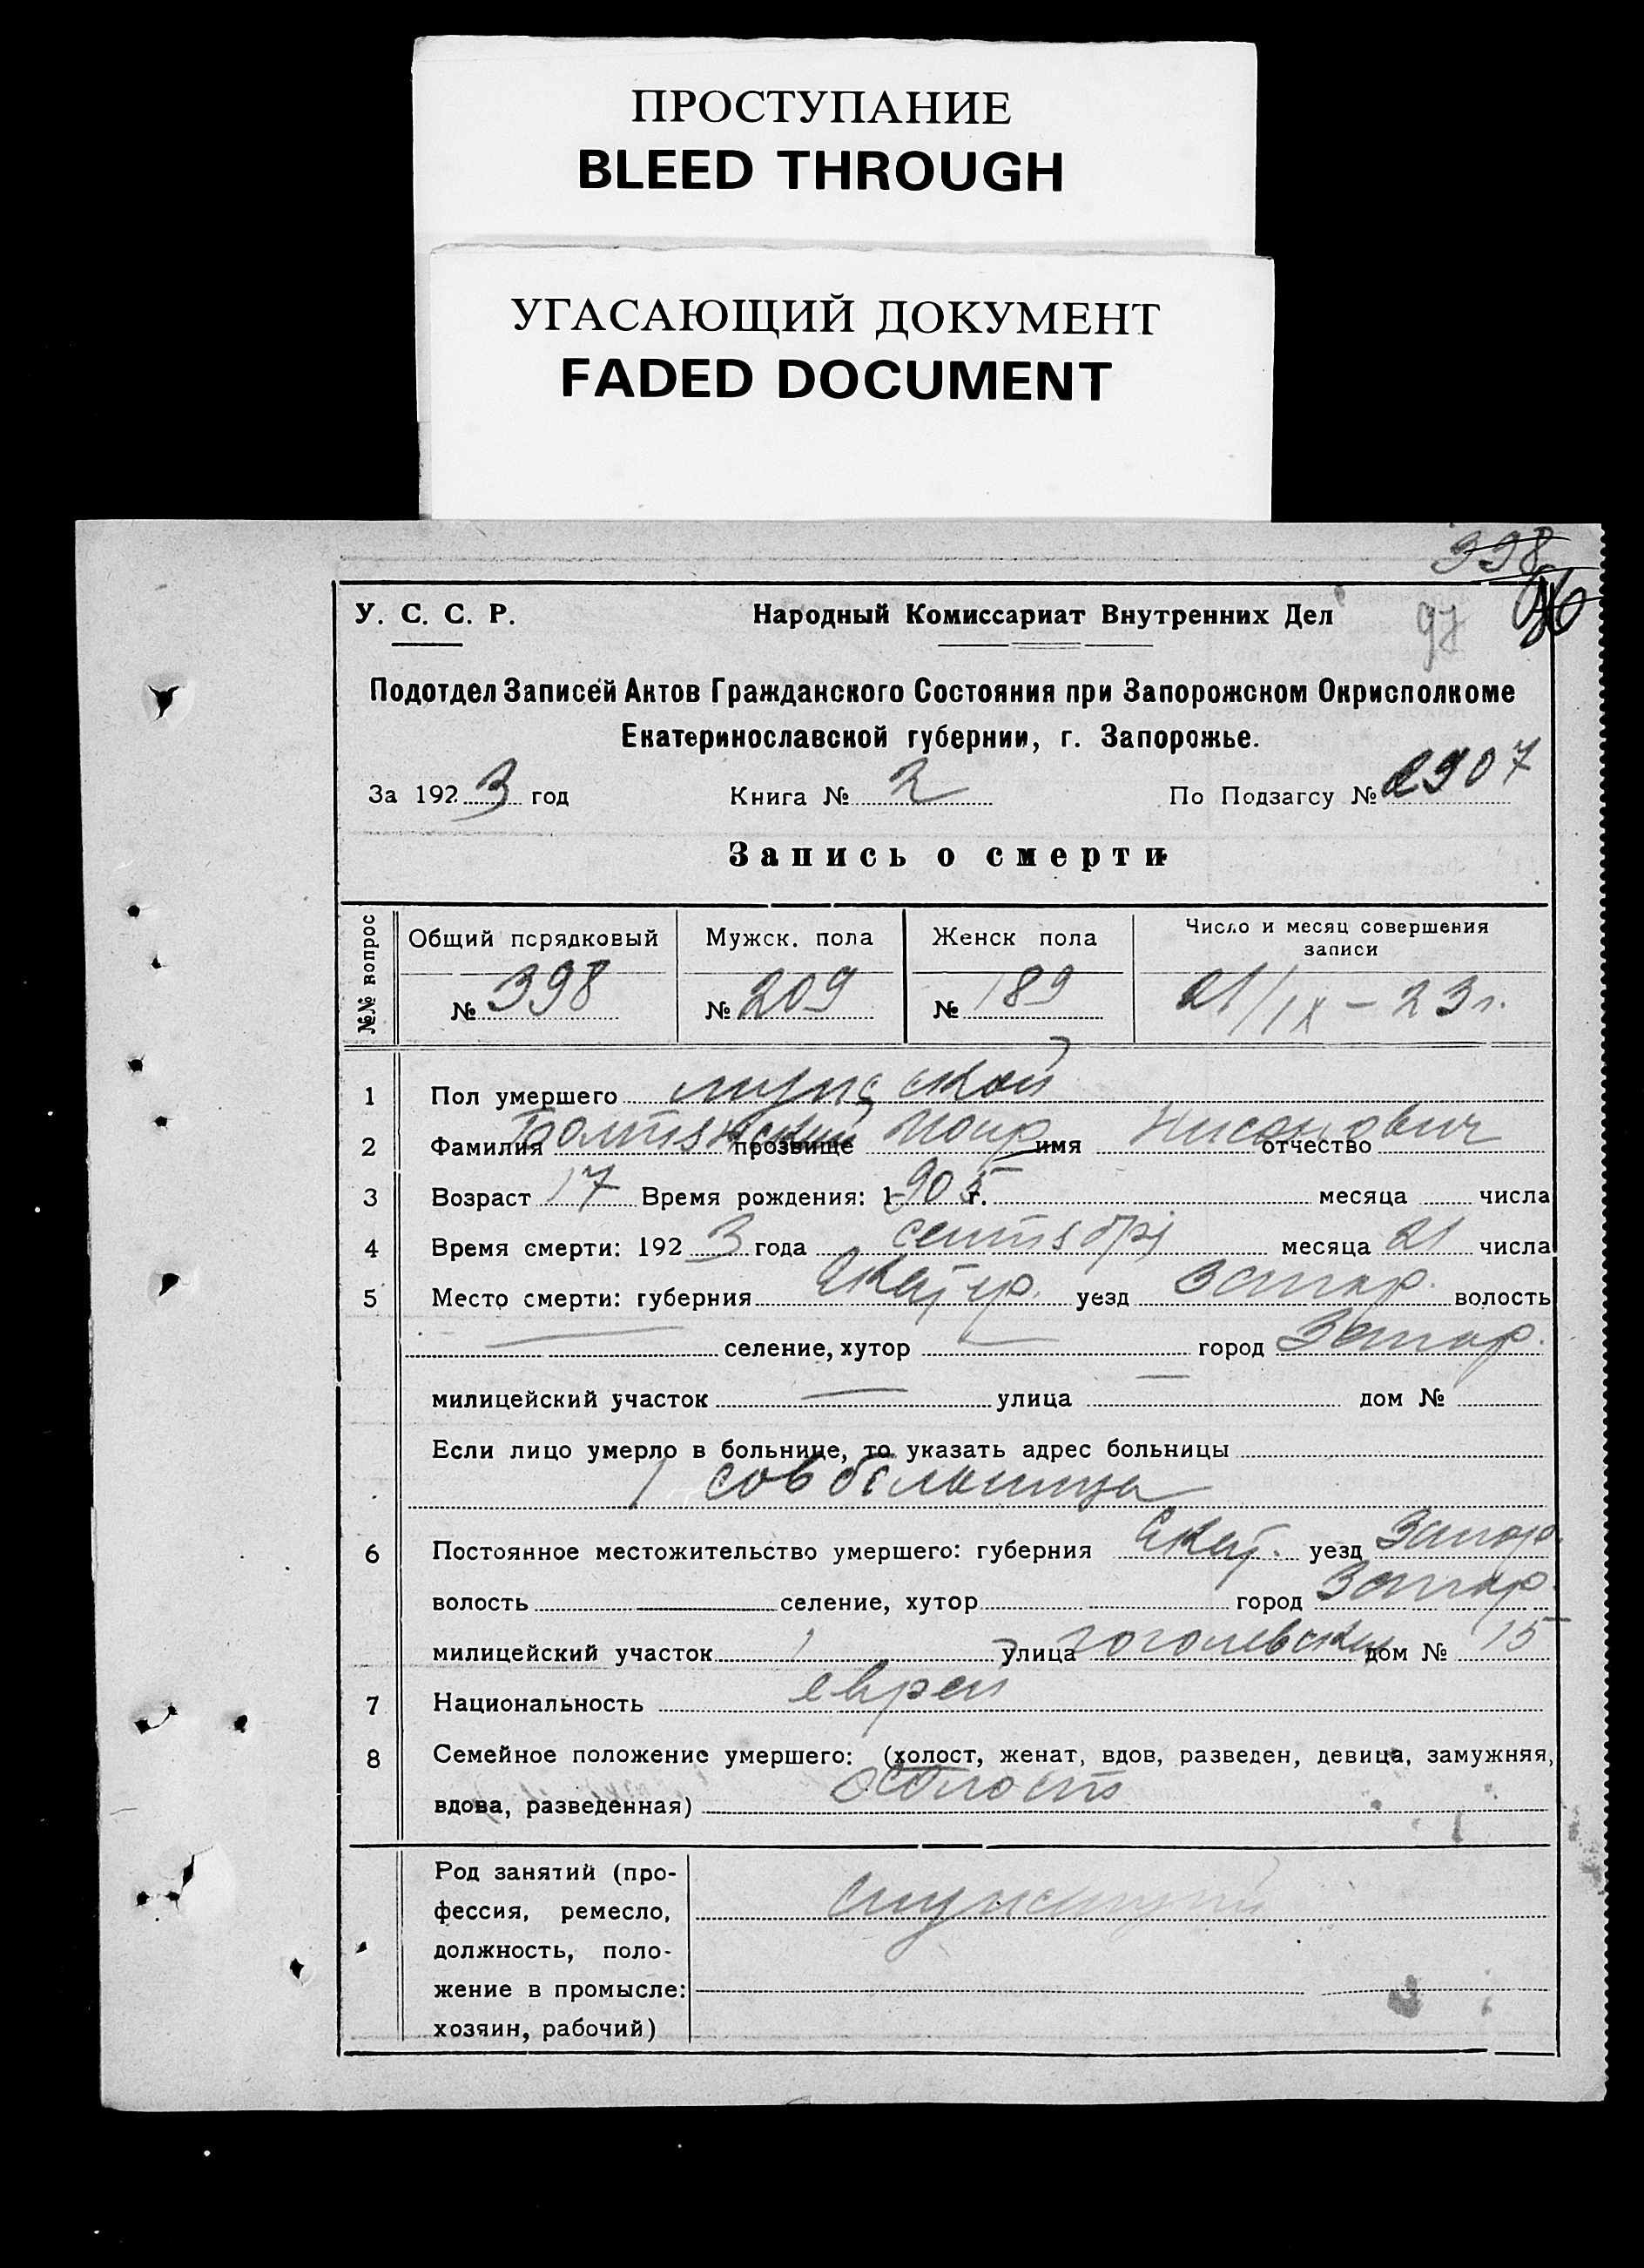 ПРОСТУПАНИЕ
BLEED THROUGH
УГАСАЮЩИЙ ДОКУМЕНТ
FADED DOCUMENT
398
96
97
У. С. С. Р. Народный Комиссариат Внутренних Дел
Подотдел Записей Актов Гражданского Состояния при Запорожском Окрисполкоме
Екатеринославской губернии, г. Запорожье.
За 1923 год Книга № 2 По Подзагсу № 2907
Запись о смерти
№№ вопрос Общий порядковый Мужск. пола Женск пола Число и месяц совершения записи
№ 398 № 209 № 189 21/IX – 23 г.
1 Пол умершего мужской
2 Фамилия прозвище имя Нисанович отчество
3 Возраст 17 Время рождения: 1905 г. месяца числа
4 Время смерти: 1923 года сентября месяца 21 числа
5 Место смерти: губерния Екатер. уезд Запор. волость
— селение, хутор — город Запор.
милицейский участок — улица — дом №
Если лицо умерло в больнице, то указать адрес больницы
1 совбольница
6 Постоянное местожительство умершего: губерния Екат. уезд Запор.
волость селение, хутор город Запор.
милицейский участок 1 улица Гоголевская дом № 15
7 Национальность еврей
8 Семейное положение умершего: (холост, женат, вдов, разведен, девица, замужняя,
вдова, разведенная) холост
Род занятий (про-
фессия, ремесло, служащий
должность, поло-
жение в промысле:
хозяин, рабочий)